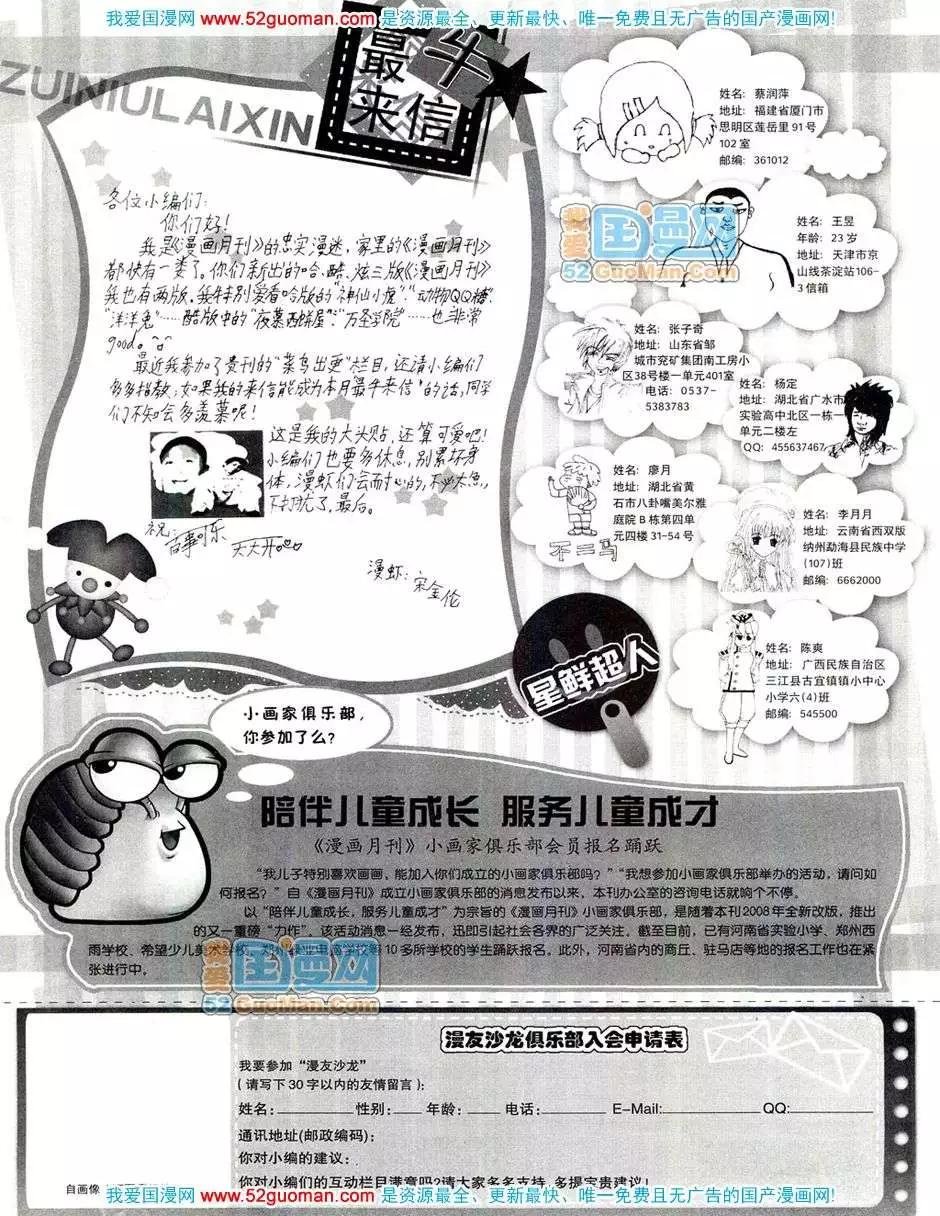 我爱国漫网 www.52guoman.com 是资源最全、更新最快、唯一免费且无广告的国产漫画网!
ZUINIULAIXIN
最牛
来信
各位小编们:
你们好!
我是《漫画月刊》的忠实漫迷,家里的《漫画月刊》
都快有一娄了。你们新出的哈、酷、炫三版《漫画月刊》
我也有两版。我特别爱看哈版的“神仙小虎”“动物QQ糖”
“洋洋兔”……酷版中的“夜幕西饼屋”“万圣学院”……也非常
good。
最近我参加了贵刊的“菜鸟出更”栏目,还请小编们
多多指教;如果我的来信能成为本月最牛来信”的话,同学
们不知会多羡慕呢!
这是我的大头贴,还算可爱吧!
小编们也要多休息,别累坏身
体,漫虾们会耐心的,
不打扰了,最后。
祝:
天天开
漫虾:宋金伦
姓名: 蔡润萍
地址: 福建省厦门市
思明区莲岳里91号
102室
邮编: 361012
我爱国漫网
52GuoMan.Com
姓名: 王昱
年龄: 23岁
地址: 天津市京
山线茶淀站106-
3信箱
姓名: 张子奇
地址: 山东省邹
城市兖矿集团南工房小
区38号楼一单元401室
电话: 0537-
5383783
姓名: 杨定
地址: 湖北省广水市
实验高中北区一栋一
单元二楼左
QQ: 455637467
姓名: 廖月
地址: 湖北省黄
石市八卦嘴美尔雅
庭院B栋第四单
元四楼31-54号
不二马
姓名: 李月月
地址: 云南省西双版
纳州勐海县民族中学
(107)班
邮编: 6662000
星鲜超人
姓名: 陈爽
地址: 广西民族自治区
三江县古宜镇镇小中心
小学六(4)班
邮编: 545500
小画家俱乐部,
你参加了么?
陪伴儿童成长 服务儿童成才
《漫画月刊》小画家俱乐部会员报名踊跃
“我儿子特别喜欢画画,能加入你们成立的小画家俱乐部吗?”“我想参加小画家俱乐部举办的活动,请问如
何报名?”自《漫画月刊》成立小画家俱乐部的消息发布以来,本刊办公室的咨询电话就响个不停。
以“陪伴儿童成长,服务儿童成才”为宗旨的《漫画月刊》小画家俱乐部,是随着本刊2008年全新改版,推出
的又一重磅“力作”。该活动消息一经发布,迅即引起社会各界的广泛关注。截至目前,已有河南省实验小学、郑州西
雨学校、希望少儿美术学校、郑州
等10多所学校的学生踊跃报名。此外,河南省内的商丘、驻马店等地的报名工作也在紧
张进行中。
我爱国漫网
52GuoMan.Com
漫友沙龙俱乐部入会申请表
我要参加“漫友沙龙”
(请写下30字以内的友情留言):
姓名: 性别: 年龄: 电话: E-Mail: QQ:
通讯地址(邮政编码):
你对小编的建议:
你对小编们的互动栏目满意吗?请大家多多支持,多提宝贵建议!
自画像
我爱国漫网 www.52guoman.com 是资源最全、更新最快、唯一免费且无广告的国产漫画网!